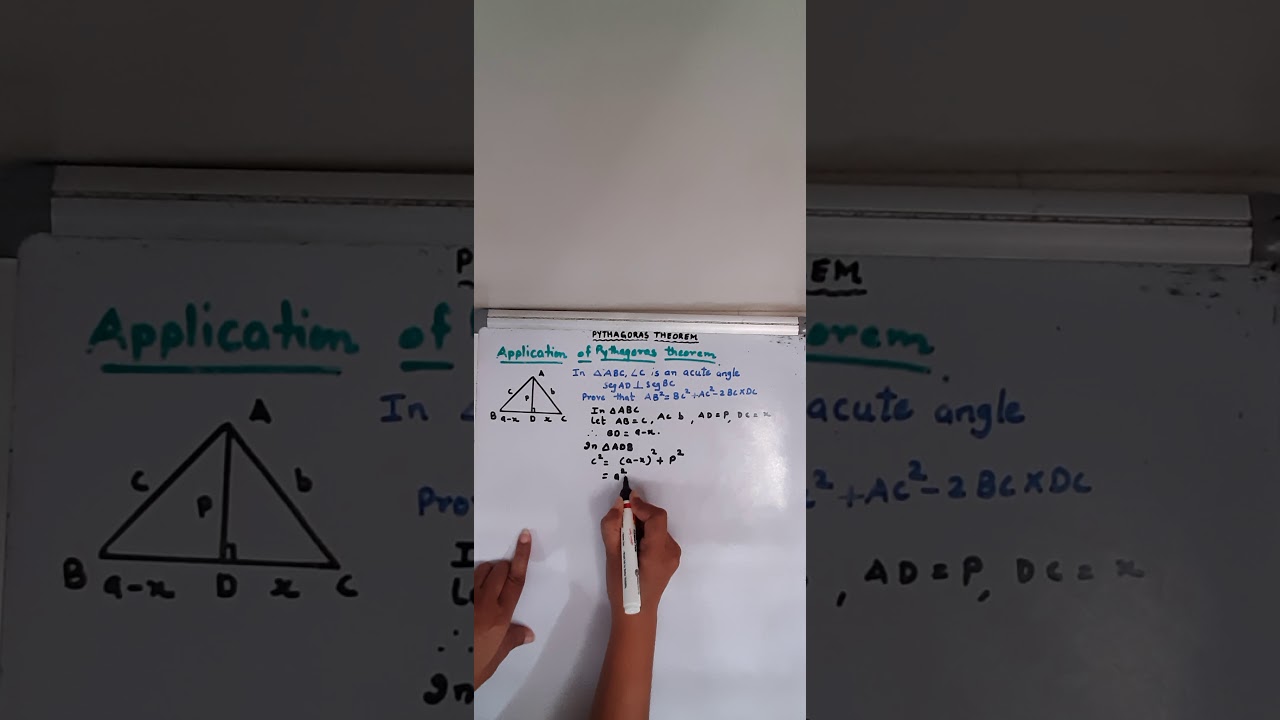 PYTHAGORAS THEOREM
Application of Pythagoras theorem
In △ABC, ∠C is an acute angle
seg AD ⊥ seg BC
Prove that AB² = BC² + AC² - 2BC × DC
A
c
b
P
B
a-x
D
x
C
In △ABC
Let AB = c, AC b, AD = P, DC = x
∴ BD = a-x.
In △ADB
c² = (a-x)² + P²
= a²